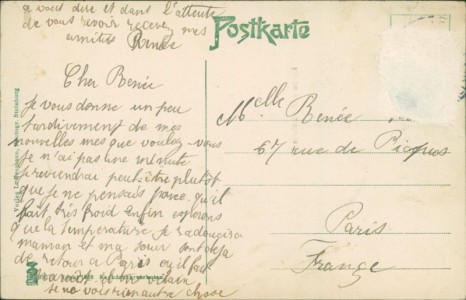 a vous dire et dans l'attente
de vous revoir recevez mes
amitiés Renée
Postkarte
Cher Renée
Je vous donne un peu
tardivement de mes
nouvelles mes que voulez-vous
je n'ai pas une minute
je reviendrai peut-être plutôt
que je ne pensais parce qu'il
fait très froid enfin espérons
que la température se radoucira
maman et ma sœur sont déjà
de retour à Paris où il fait
très vilain
je ne vois rien autre chose
Melle Renée
67 rue de Picpus
Paris
France